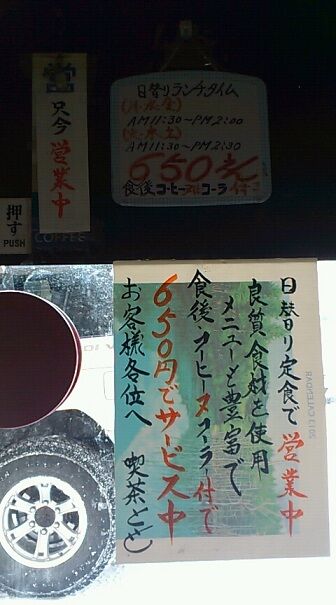 営
只今 営業中
日替りランチタイム
(月・水・金)
AM11:30~PM2:00
(火・木・土)
AM11:30~PM2:30
650えん
食後コーヒー又はコーラ付き
押す
PUSH
COFFEE
日替り定食で営業中
良質食材を使用
メニューも豊富で
食後・コーヒー又コーラ付で
650円でサービス中
お客様各位へ 喫茶とと
2013 CALENDAR